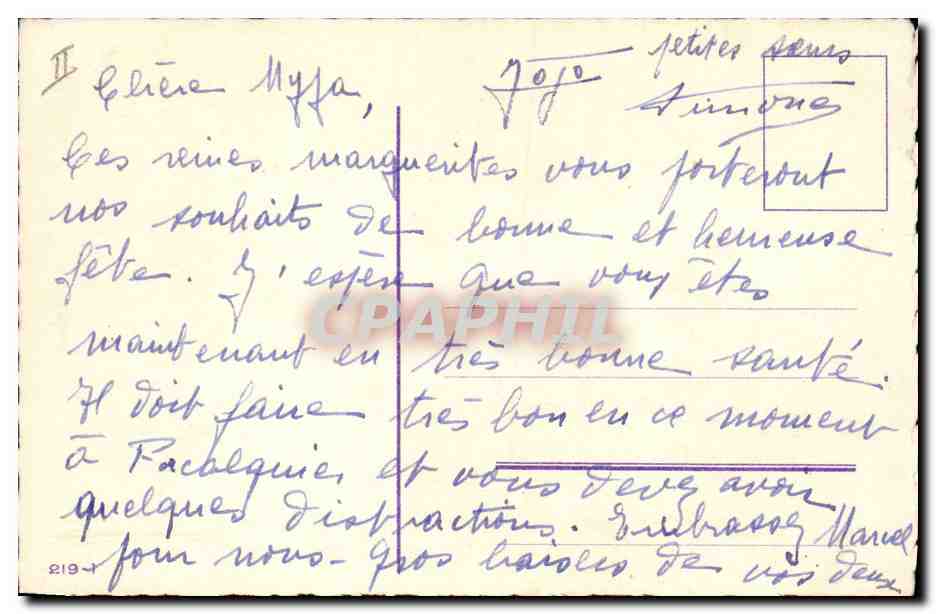 II
Chère Myja,
Ces reines marguerites vous porteront
nos souhaits de bonne et heureuse
fête. J'espère que vous êtes
maintenant en très bonne santé.
Il doit faire très bon en ce moment
à Focalquier et vous devez avoir
quelques distractions. Embrassez Marcel
pour nous - Gros baisers de vos deux
petites sœurs
Jojo
Simone
CPAPHIL
219-1